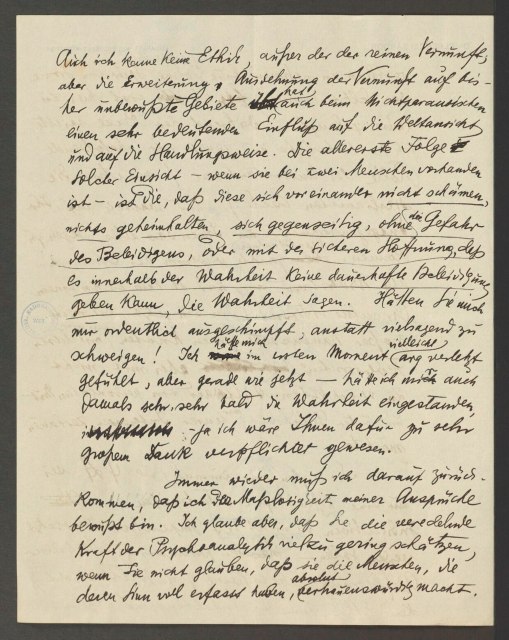 Auch ich kenne keine Ethik, außer der der reinen Vernunft,
aber die Erweiterung u. Ausdehnung der Vernunft auf bis-
her unbewußte Gebiete hat auch beim Nichtparanoischen
einen sehr bedeutenden Einfluß auf die Weltansicht
und auf die Handlungsweise. Die allererste Folge
solcher Einsicht – wenn sie bei zwei Menschen vorhanden
ist – ist die, daß diese sich voreinander nicht schämen,
nichts geheimhalten, sich gegenseitig, ohne die Gefahr
des Beleidigens, oder mit der sicheren Hoffnung, daß
es innerhalb der Wahrheit keine dauerhafte Beleidigung
geben kann, die Wahrheit sagen. Hätten Sie mich
nur ordentlich ausgeschimpft, anstatt vielsagend zu
schweigen! Ich hätte mich im ersten Moment vielleicht arg verletzt
gefühlt, aber gerade wie jetzt – hätte ich mich auch
damals sehr, sehr bald die Wahrheit eingestanden
– ja ich wäre Ihnen dafür zu sehr
großem Dank verpflichtet gewesen.
Immer wieder muß ich darauf zurück-
kommen, daß ich die Maßlosigkeit meiner Ansprüche
bewußt bin. Ich glaube aber, daß Sie die veredelnde
Kraft der Psychoanalytik viel zu gering schätzen,
wenn Sie nicht glauben, daß sie die Menschen, die
deren Sinn voll erfasst haben, absolut vertrauenswürdig macht.